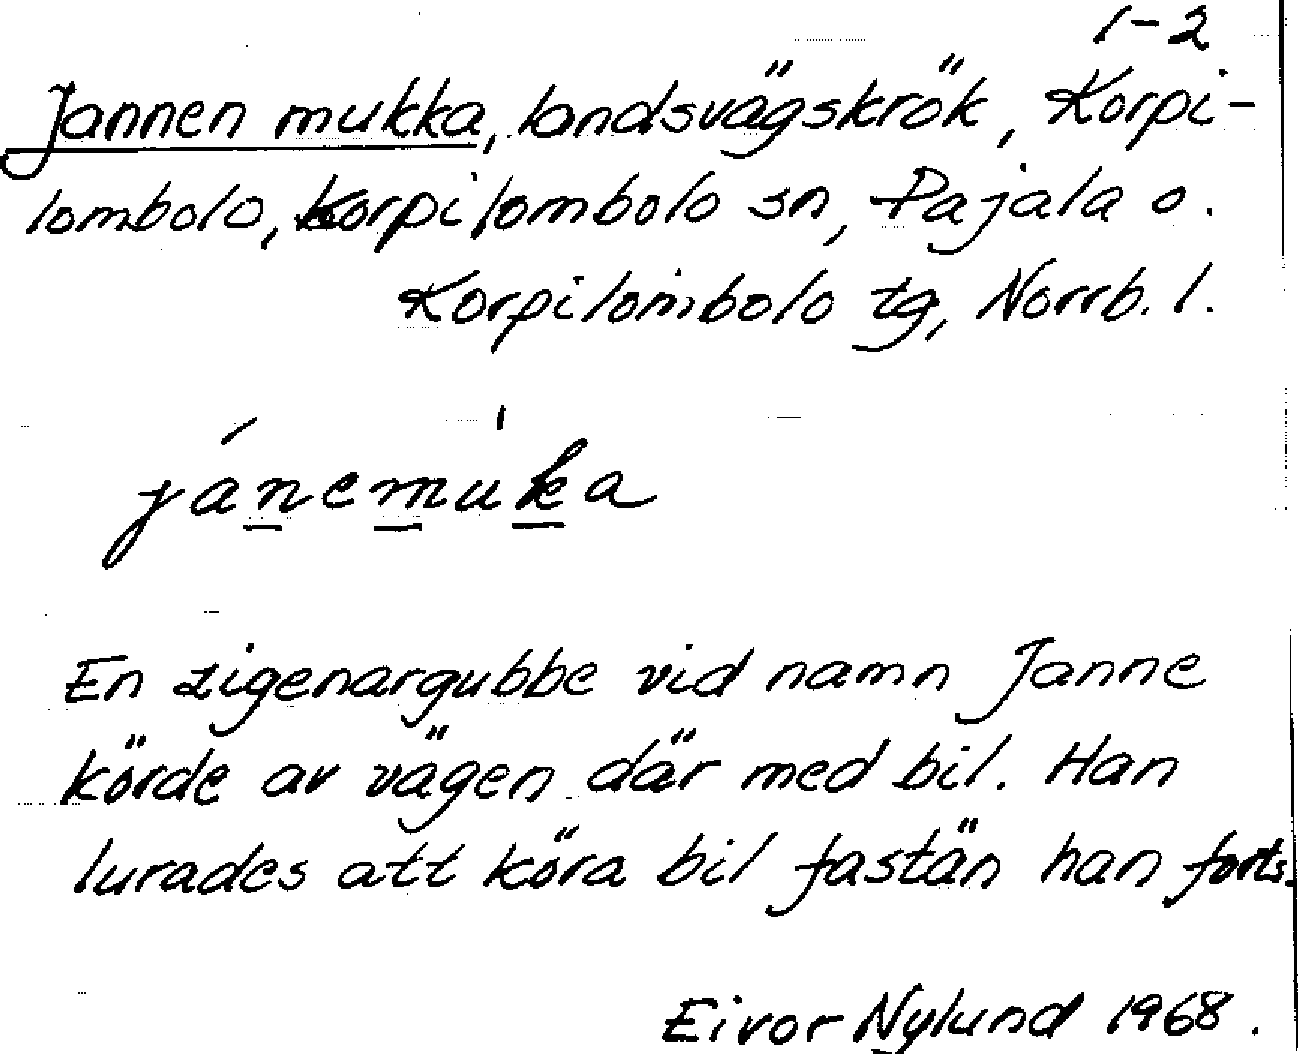 1-2
Jannen mukka, landsvägskrök, Korpi-
lombolo, Korpilombolo sn, Pajala o.
Korpilombolo tg, Norrb. l.
jánemúka
En zigenargubbe vid namn Janne
körde av vägen där med bil. Han
lurades att köra bil fastän han forts.
Eivor Nylund 1968.